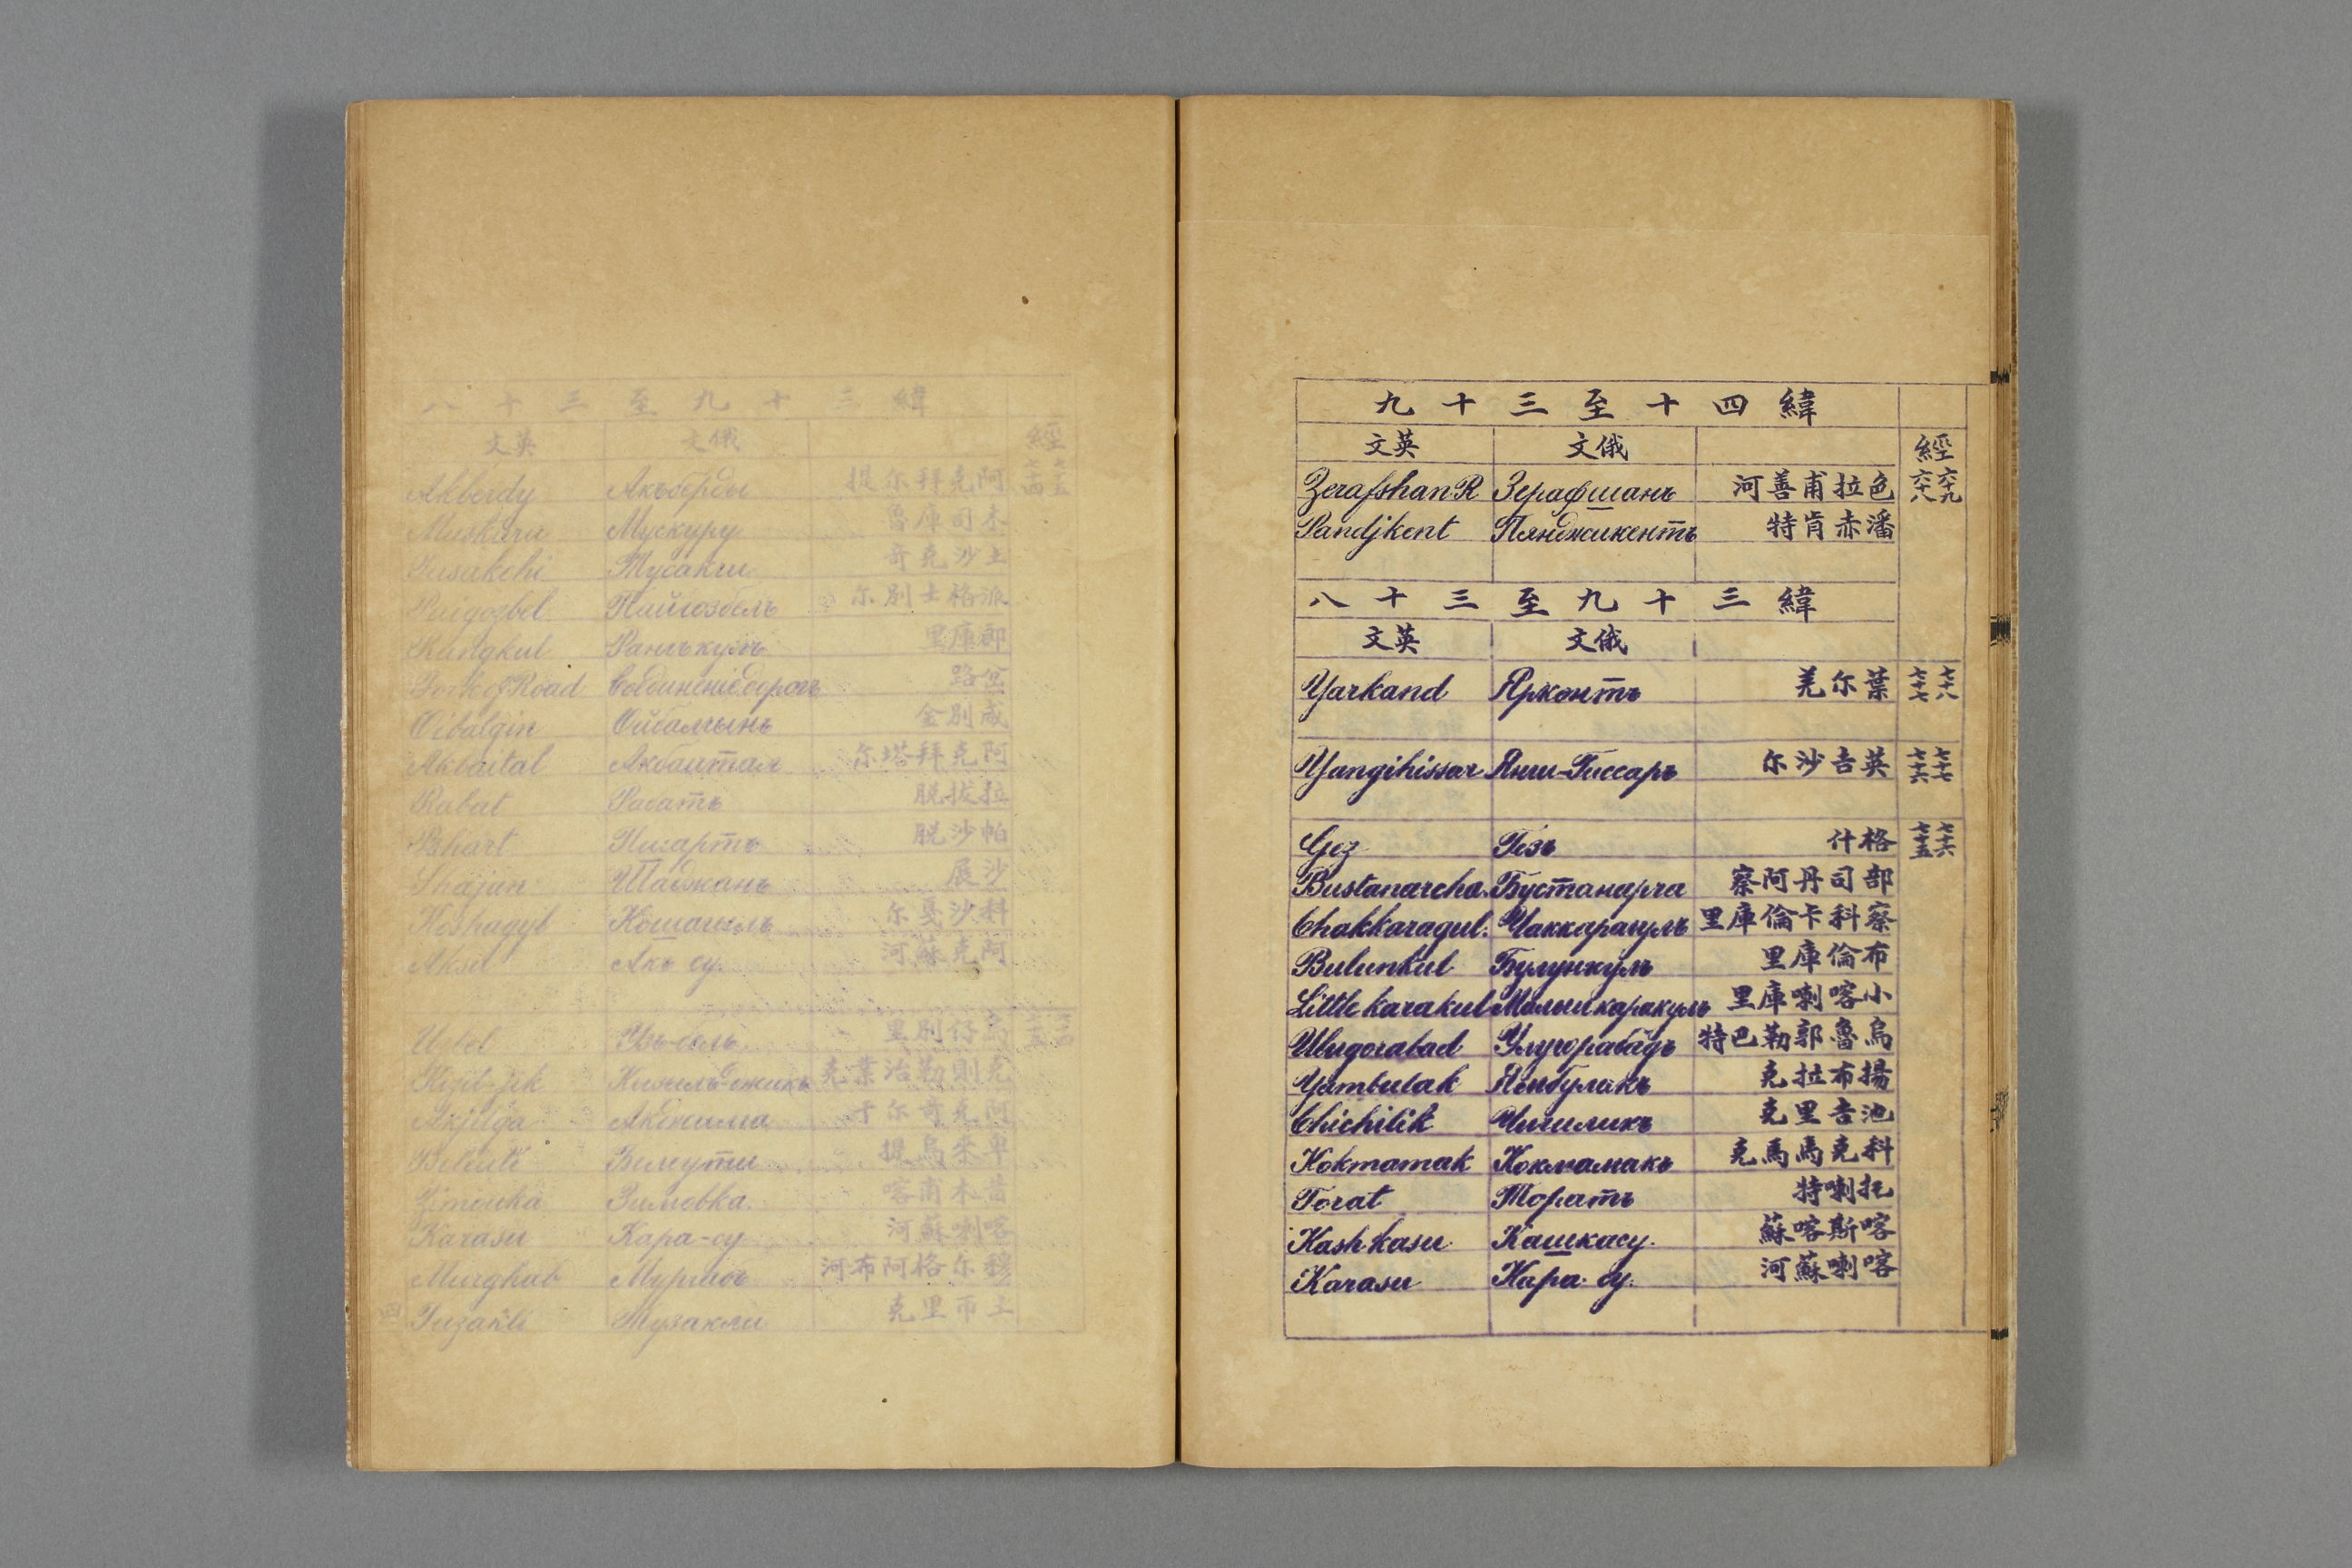 緯四十至三十九
經 俄文 英文
六十九 六十八 色拉甫善河 Зерафшанъ Zerafshan R
潘赤肯特 Пянджикентъ Pandjkent
緯三十九至三十八
俄文 英文
七十八 七十七 葉尔羌 Яркентъ Yarkand
七十七 七十六 英吉沙尔 Янги-Гиссаръ Yangihissar
七十六 七十五 格什 Гезъ Gez
部司丹阿察 Бустанарча Bustanarcha
察科卡倫庫里 Чаккарагулъ Chakkaragul
布倫庫里 Булункулъ Bulunkul
小喀喇庫里 Малыи каракулъ Little karakul
烏魯郭勒巴特 Улугорабадъ Ulugorabad
揚布拉克 Ямбулакъ Yambulak
池吉里克 Чичиликъ Chichilik
科克馬馬克 Кокмамакъ Kokmamak
托喇特 Торатъ Torat
喀斯喀蘇 Кашкасу. Kashkasu
喀喇蘇河 Кара-су. Karasu
緯三十九至三十八
經 俄文 英文
七十五 七十四 阿克拜尔提 Акъберды Akberdy
木司庫魯 Мускуру Muskuru
土沙克奇 Тусакчи Tusakchi
派格士別尔 Пайгозбелъ Paigozbel
郎庫里 Рангъкулъ Rangkul
岔路 Fork of Road
咸別金 Ойбалгынъ Oibalgin
阿克拜塔尔 Акбаитал Akbaital
拉拔脱 Рабатъ Rabat
帕沙脱 Пшартъ Pshart
沙展 Шаджанъ Shajan
科沙戛尔 Кошагылъ Koshagyl
阿克蘇河 Акъ су. Aksu
烏仔別里 Узъ-белъ Uzbel
克則勒治葉克 Кизилъ-джикъ Kizil-jik
阿克奇尔干 Акджилга Akjilga
卑來烏提 Белеути Beleuti
昔木甫喀 Зимовка. Zimovka
喀喇蘇河 Кара-су Karasu
穆尔格阿布河 Мургабъ Murghab
土帀里克 Тузакли Tuzakli
四